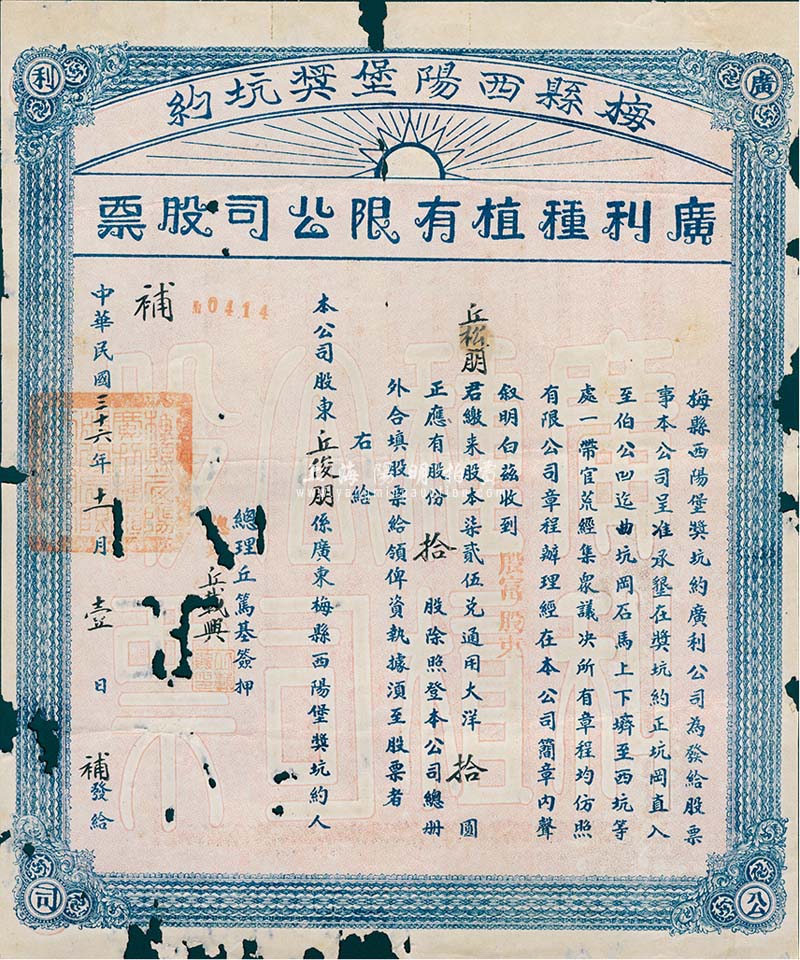 梅縣西陽堡獎坑約
廣利種植有限公司股票
廣
利
公
司
梅縣西陽堡獎坑約廣利公司為發給股票
事本公司呈准承墾在獎坑約正坑岡直入
至伯公凹迄曲坑岡石馬上下㙟至西坑等
處一帶官荒經集衆議决所有章程均仿照
有限公司章程辦理經在本公司簡章內聲
叙明白兹收到
丘松朋君繳来股本柒貳伍兑通用大洋拾圓
正應有股份拾股除照登本公司總册
外合填股票給領俾資執據湏至股票者
右給
本公司股東丘俊朋係廣東梅縣西陽堡獎坑約人
總理丘篤基簽押
丘載興
補
№0414
中華民國三十六年十一月壹日補發給
股富股東